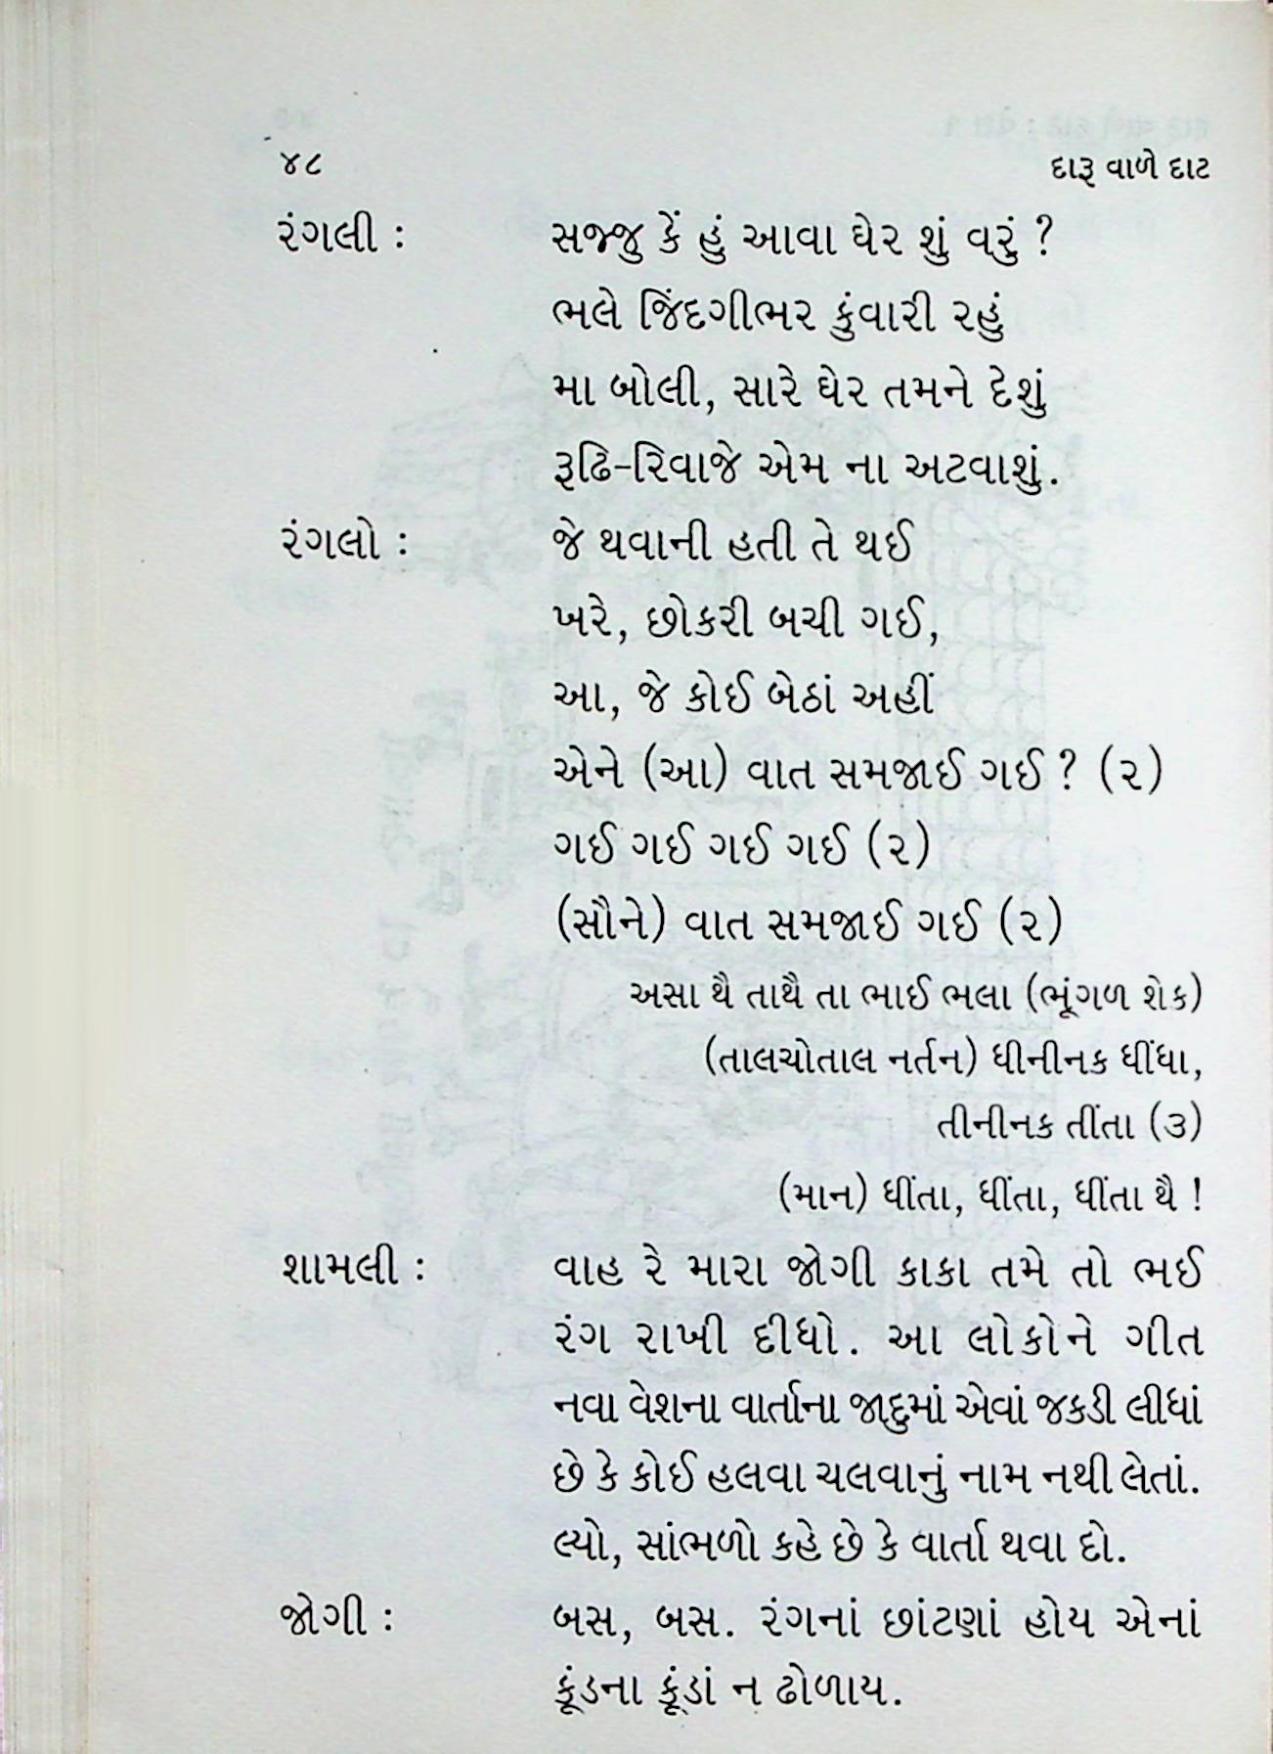 ૪૮ દારૂ વાળે દાટ
રંગલી : સજ્જુ કેં હું આવા ઘેર શું વરું ?
ભલે જિંદગીભર કુંવારી રહું
મા બોલી, સારે ઘેર તમને દેશું
રૂઢિ-રિવાજે એમ ના અટવાશું.
રંગલો : જે થવાની હતી તે થઈ
ખરે, છોકરી બચી ગઈ,
આ, જે કોઈ બેઠાં અહીં
એને (આ) વાત સમજાઈ ગઈ ? (૨)
ગઈ ગઈ ગઈ ગઈ (૨)
(સૌને) વાત સમજાઈ ગઈ (૨)
અસા થૈ તાથૈ તા ભાઈ ભલા (ભૂંગળ શેક)
(તાલચોતાલ નર્તન) ધીનીનક ધીંધા,
તીનીનક તીંતા (૩)
(માન) ધીંતા, ધીંતા, ધીંતા થૈ !
શામલી : વાહ રે મારા જોગી કાકા તમે તો ભઈ
રંગ રાખી દીધો. આ લોકોને ગીત
નવા વેશના વાર્તાના જાદુમાં એવાં જકડી લીધાં
છે કે કોઈ હલવા ચલવાનું નામ નથી લેતાં.
લ્યો, સાંભળો કહે છે કે વાર્તા થવા દો.
જોગી : બસ, બસ. રંગનાં છાંટણાં હોય એનાં
કૂંડના કૂંડાં ન ઢોળાય.